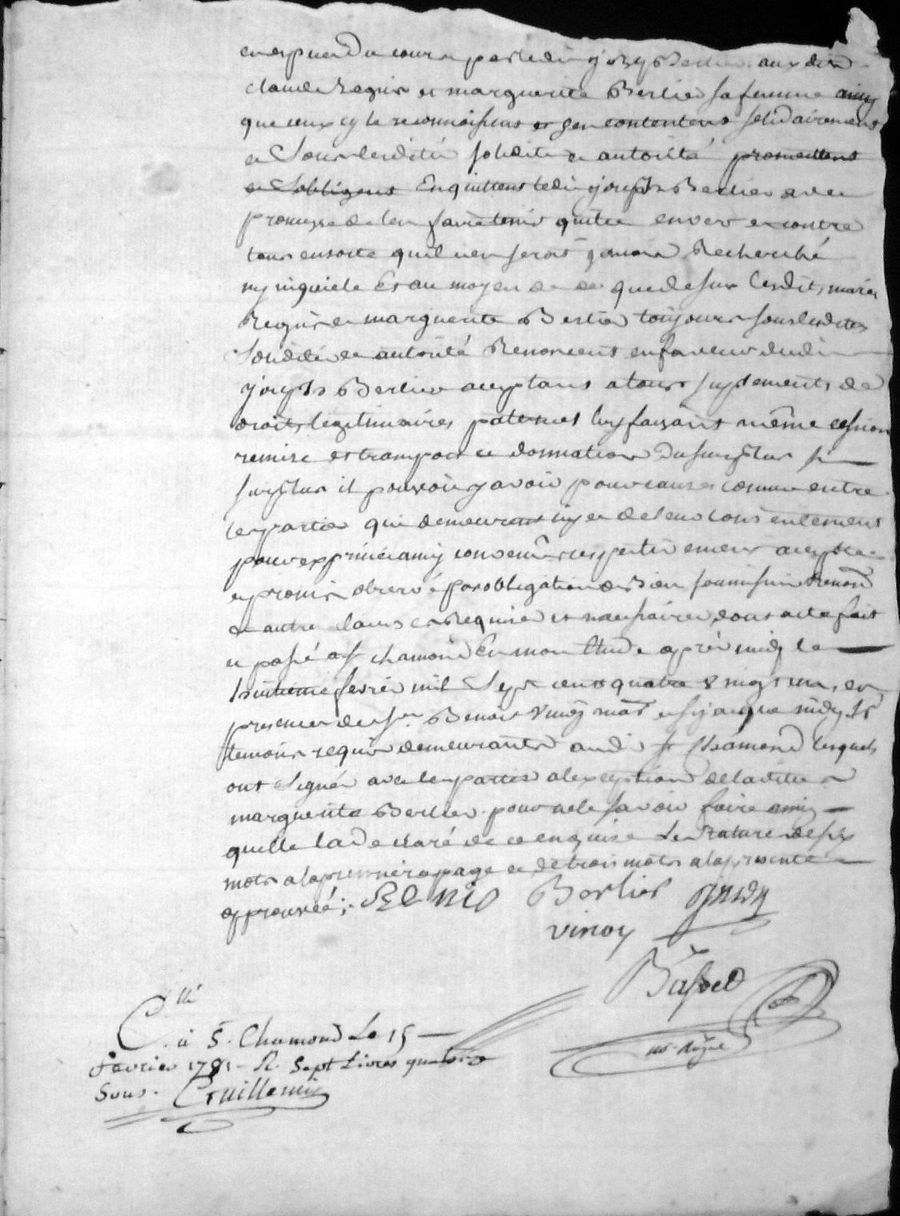 en espèces du cours par ledit joseph Berlier auxdits
claude Regnis et marguerite Berlier sa femme ainsy
que ceux cy le reconnoissent et s'en contentent solidairement
et sous lesdittes solidité et autorité promettent
et s'obligent En quittent ledit joseph Berlier avec
promesse de l'en faire tenir quitte envers et contre
tous ensorte qu'il n'en serat jamais Recherché
ny inquieté Et au moyen de ce que dessus lesdits mariés
Regnis et marguerite Berlier toujours sous lesdittes
solidité et autorité Renoncent en faveur dudit
joseph Berlier acceptant a tous suplements de
droits legitimaires paternels luy faisant même cession
remise et transport et donnation du surplus si
surplus il pouvoit y avoir pour causes connues entre
les parties qui demeurent
pour exprimé ainsy convenu respectivement accepté
et promis observé par obligation de Bien soumission Renon
et autre clauses Requise et necessaires dont acte fait
et passé a st chamond En mon Etude après midy le
huitieme fevrier mil sept cent quatre vingt un, en
presence de sr Benoit vinoy et sr jacque
temoins requis demeurants audit st chamond lesquels
ont signés avec les parties a l'exception de laditte
marguerite Berlier pour ne le savoir faire ainsy
quelle la declaré de ce enquise. La Rature de six
mots a la premiere page et de trois mots a la presente
approuvée ;. REGNIS Berlier
vinoy
Bassod
nre Royal
Cllé
à St. Chamond Le 15
fevrier 1781. R. Sept Livres quatorze
Sous. Guillemin